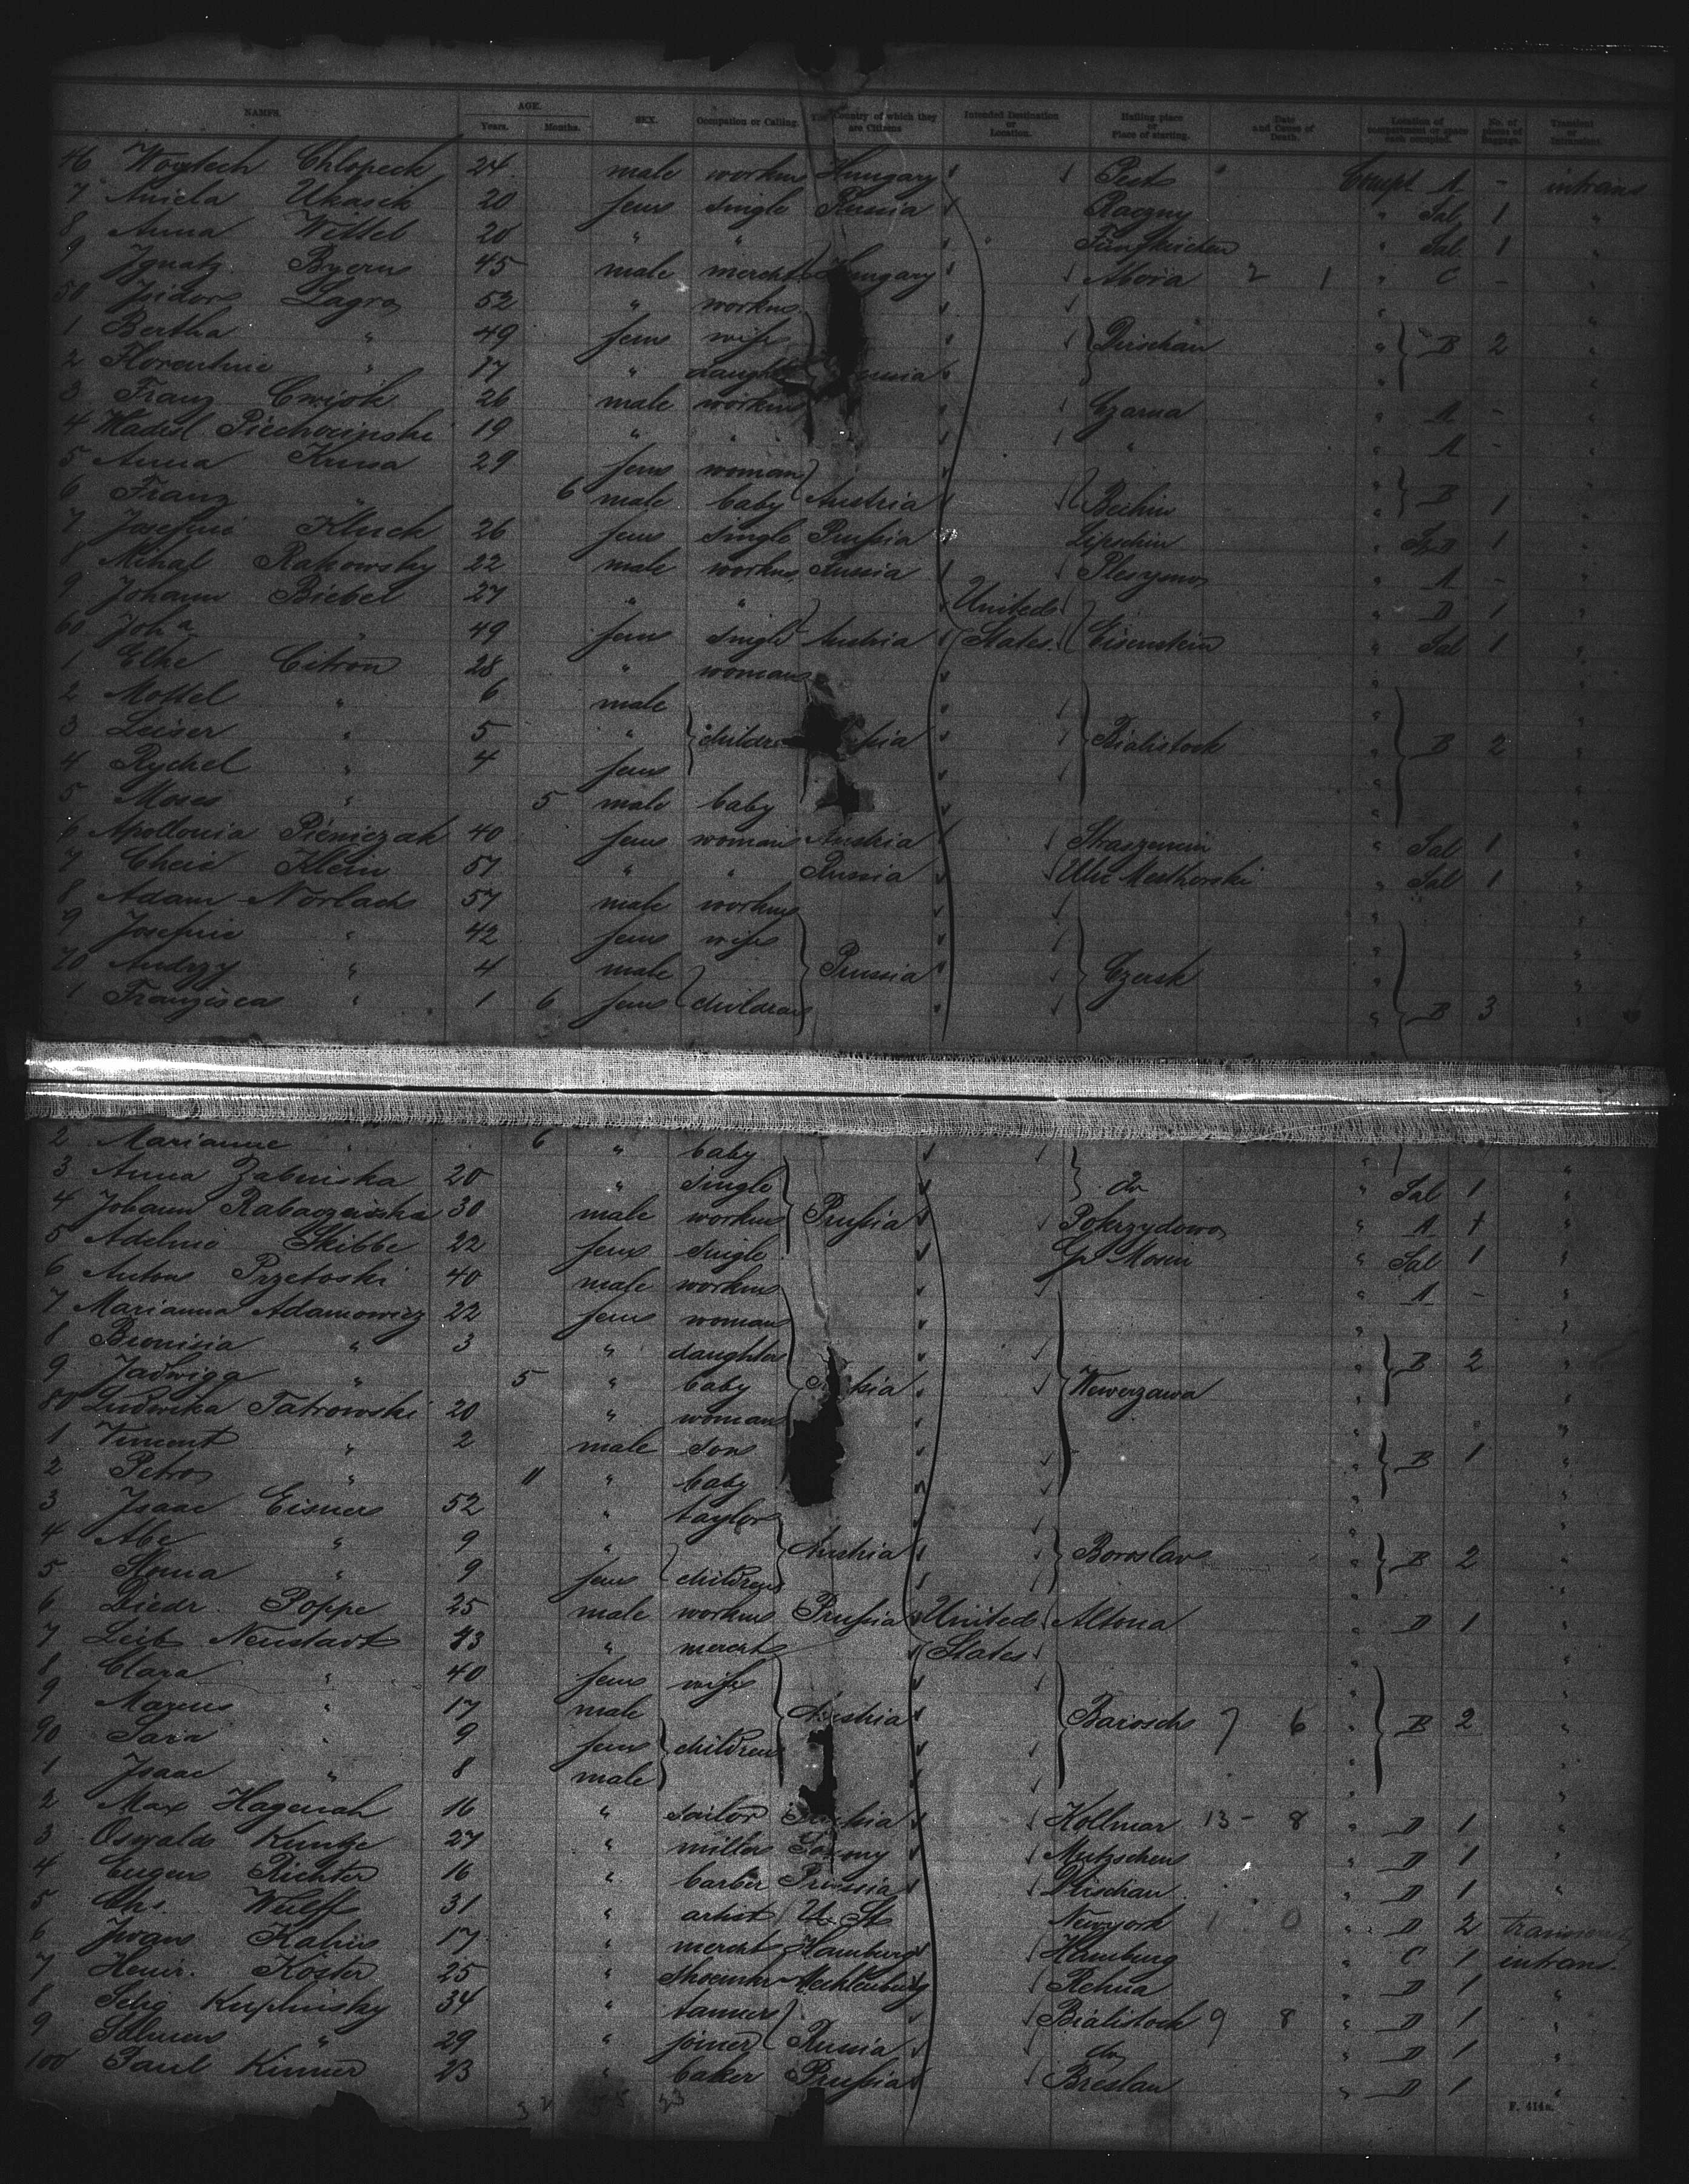 NAMES. AGE. Years. Months. SEX. Occupation or Calling. The Country of which they are Citizens Intended Destination or Location. Hailing place or Place of starting. Date and Cause of Death. Location of compartment or space each occupied. No. of pieces of baggage. Transient or Intransient.
46 Chlopeck 24 male workm Hungary Pest Compt A - intrans
7 Aniela Ukasik 20 fem single Russia Raczny " Sal 1 "
8 Anna Wittel 20 " " Fünfkirchen " Sal 1 "
9 Ignatz Byern 45 male mercht Hungary 2 1 " C - "
50 Isidor Lagro 52 " workm "
1 Bertha " 49 fem wife Dirschau " B 2 "
2 Florentine " 17 " daughter "
3 Franz Cwijok 26 male workm Czarna " A - "
4 Wladisl Piechocinski 19 " " " " A - "
5 Anna Krusa 29 fem woman
6 Franz " 6 male baby Austria Bechin " B 1 "
7 Josefine Kluck 26 fem single Prussia Lipschin " 1 "
8 Mihal Rakowsky 22 male workm Russia " A - "
9 Johann Biebel 27 " " United " D 1 "
60 Joha " 49 fem single Austria States. Eisenstein " Sal 1 "
1 Elke Citron 28 " woman
2 Mottel " 6 male
3 Leiser " 5 " children Bialistock " B 2 "
4 Rychel " 4 fem
5 Moses " 5 male baby
6 Apollonia Pieniczak 40 fem woman Austria " Sal 1 "
7 Cheie Klein 57 " " Russia " Sal 1 "
8 Adam Norlach 57 male workm
9 Josefine " 42 fem wife "
70 Andrzy " 4 male Prussia Czersk "
1 Franzisca " 1 6 fem children " B 3 "
2 Marianne " 6 " baby "
3 Anna Zabinska 20 " single do " Sal 1 "
4 Johann 30 male workm Prussia Pokrzydowo " A 1 "
5 Adeline Skibbe 22 fem single Gr Mosen " Sal 1 "
6 Anton Przetoski 40 male workm " A - "
7 Marianna Adamowicz 22 fem woman "
8 Bronisia " 3 " daughter " B 2 "
9 Jadwiga " 5 " baby "
80 Ludwika Tatrowski 20 " woman "
1 Vincent " 2 male son " B 1 "
2 Petro " 11 " baby "
3 Isaac Eisner 52 " taylor "
4 Abe " 9 " Austria Boroslav " B 2 "
5 " 9 fem children "
6 Diedr. Poppe 25 male workm Prussia United Altona D 1 "
7 Leib Neustadt 43 " mercht States "
8 Clara " 40 fem wife "
9 Marcus " 17 male Austria Barosch 7 6 " B 2 "
90 Sara " 9 fem children "
1 Isaac " 8 male "
2 Max Hagenah 16 " sailor Kollmar 13 - 8 " D 1 "
3 Oswald Kuntze 27 " miller Mutzschen " D 1 "
4 Eugen Richter 16 " barber Prussia Dirschau " D 1 "
5 Chs. Wulff 31 " artist U. St Newyork 1 0 " D 2
6 Iwan Kahn 17 " mercht Hamburg Hamburg " C 1 intrans.
7 Heinr. Köster 25 " shoemkr Mecklenburg Rehna " D 1 "
8 Selig Kuplinsky 34 " tanner Bialistock 9 8 " D 1 "
9 Salmen " 29 " joiner Russia do " D 1 "
100 Paul Kinner 23 " baker Prussia Breslau " D 1 "
F. 414a.